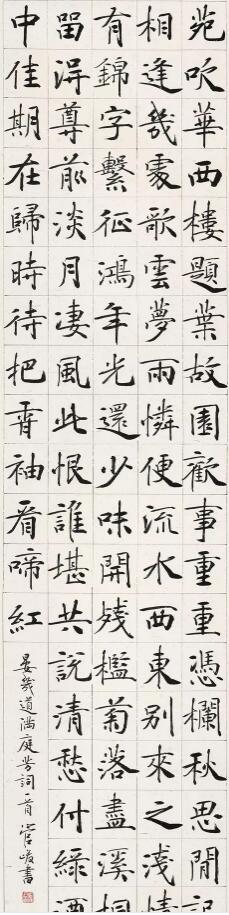 苑吹華西樓題葉故園歡事重重憑欄秋思閒記
相逢幾處歌雲夢雨憐便流水西東別來之淺
有錦字繫征鴻年光還少味開殘檻菊落盡溪
留得尊前淡月淒風此恨誰堪共說清愁付綠酒
中佳期在歸時待把香袖看啼紅
晏幾道滿庭芳詞一首 官峻書